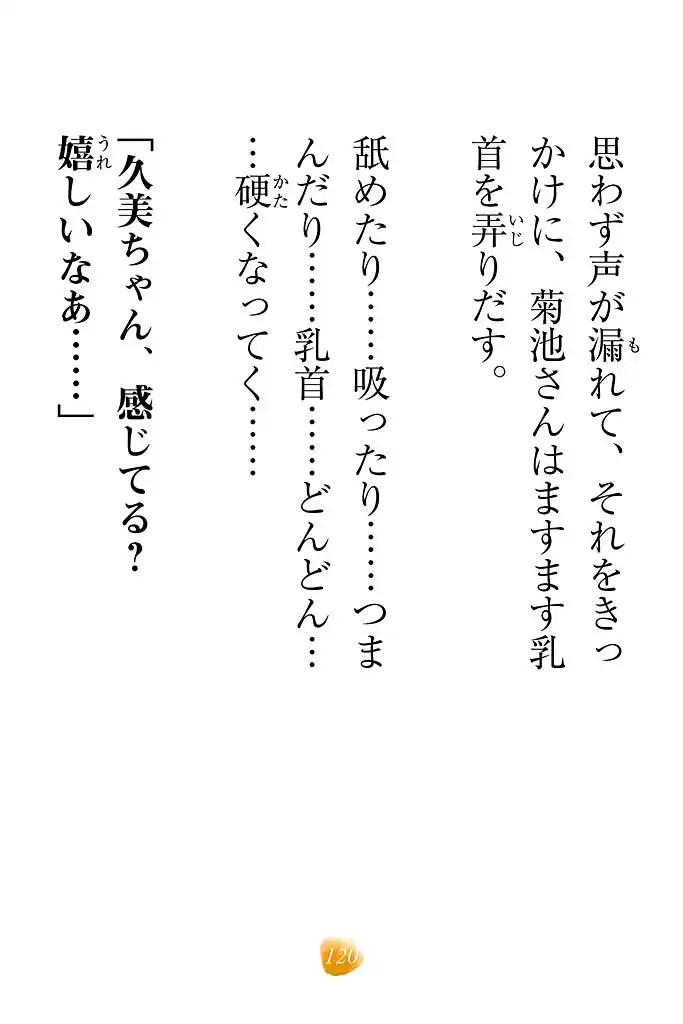 思わず声が漏れて、それをきっ
かけに、菊池さんはますます乳
首を弄りだす。
舐めたり……吸ったり……つま
んだり……乳首……どんどん…
…硬くなってく……
「久美ちゃん、感じてる？
嬉しいなあ……」
も
いじ
かた
うれ
120